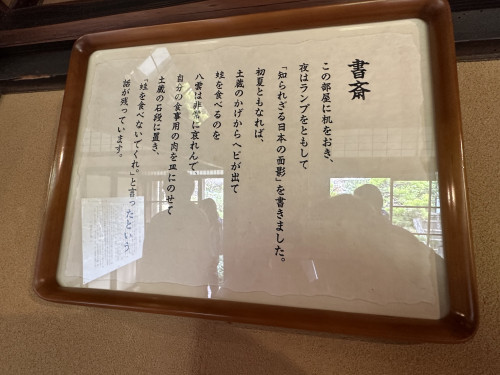 書斎
この部屋に机をおき、
夜はランプをともして
「知られざる日本の面影」を書きました。
初夏ともなれば、
土蔵のかげからヘビが出て
蛙を食べるのを
八雲は非常に哀れんで
自分の食事用の肉を皿にのせて
土蔵の石段に置き、
「蛙を食べないでくれ。」と言ったという
話が残っています。